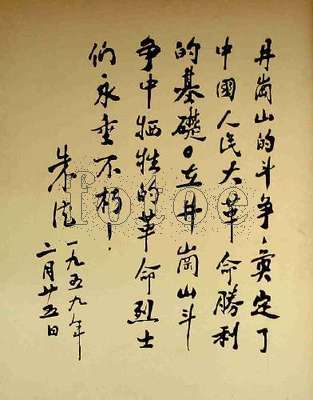 井崗山的斗争，奠定了
中國人民大革命勝利
的基礎。在井崗山斗
争中牺牲的革命烈士
们永垂不朽！
朱德
一九五九年
二月廿五日
fotoe